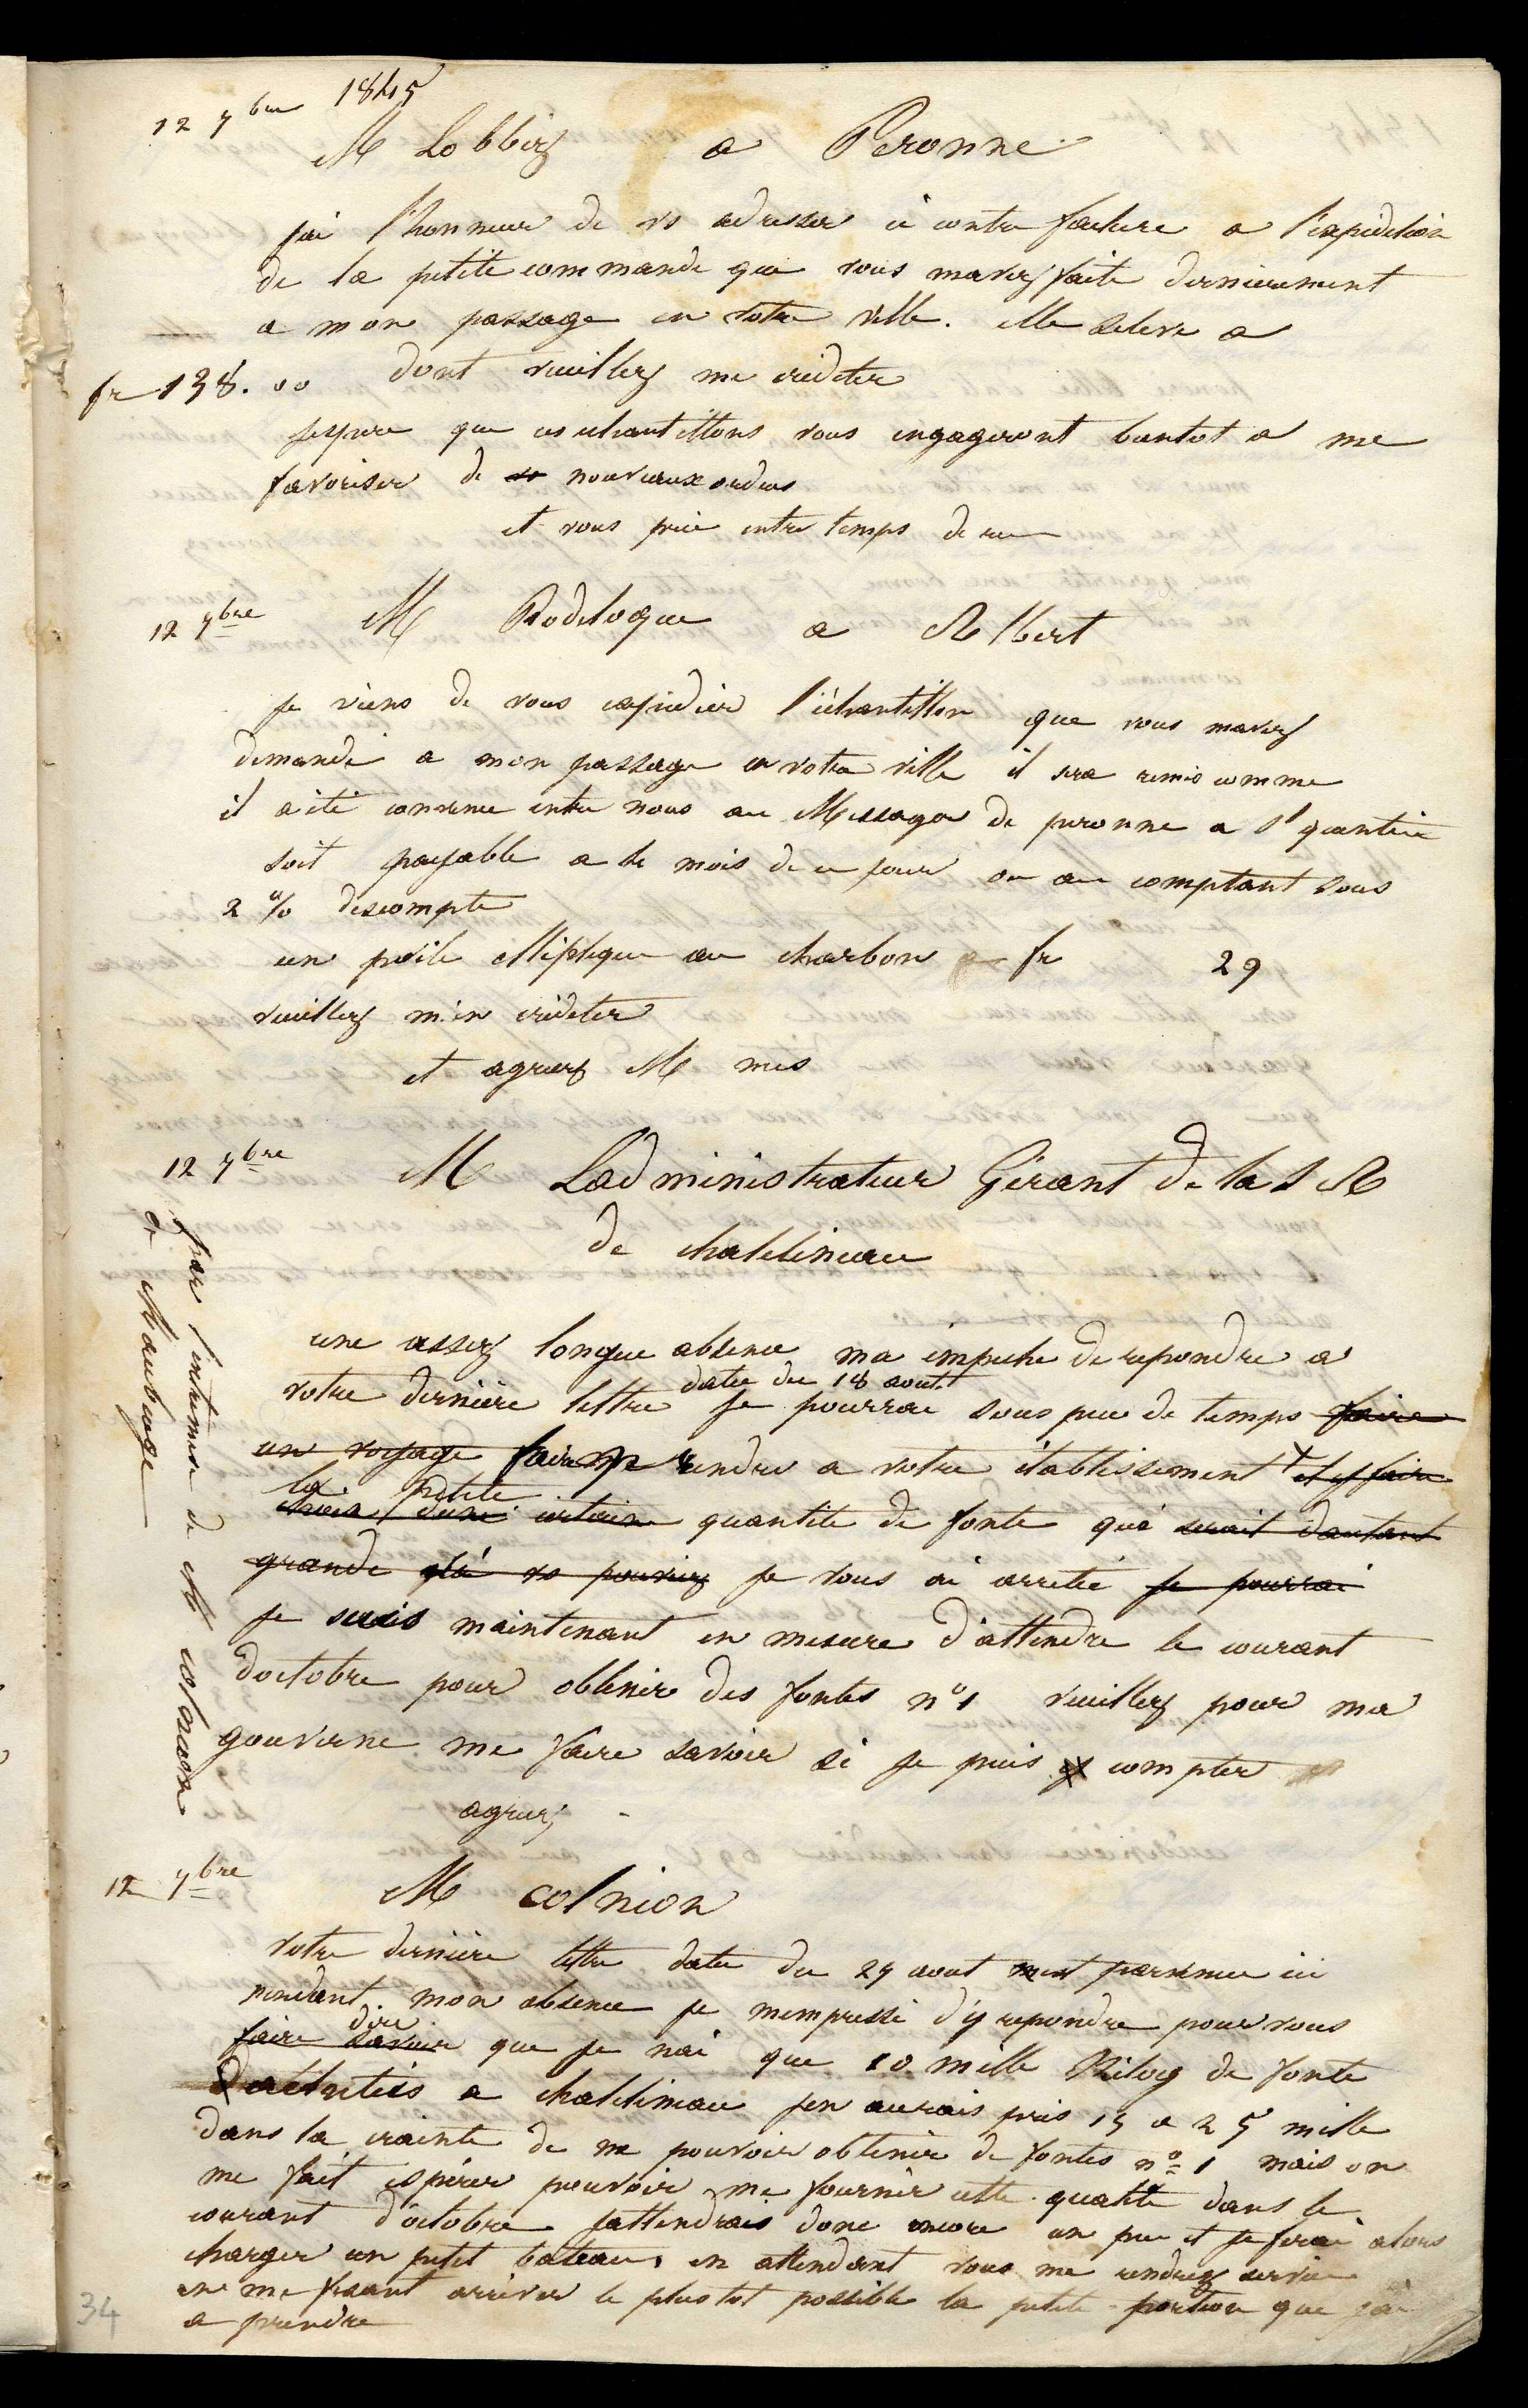 12 7bre 1845
M Lobbiez a Peronne
jai l'honneur de vs adresser ci contre facture a l'expedition
de la petite commande que vous mavez faite dernierement
a mon passage en votre ville. elle seleve a
fr 138. 00 dont veuillez me créditer
jespere que ces echantillons vous engageront bientot a me
favoriser de nouveaux ordres
et vous prie entre temps de
12 7bre M Rodeloque a Albert
je viens de vous expedier l'échantillon que vous mavez
demandé a mon passage en votre ville il sera remis comme
il a été convenu entre nous au Messager de peronne a St quentin
soit payable a 6 mois de ce jour ou au comptant sous
2 % descompte
un poële elliptique au charbon fr 29
veuillez m'en créditer
et agréez M mes
12 7bre M Ladministrateur Gérant de la S A
de chatelineau
par l'entremise de M colnion
a Maubeuge
une assez longue absence ma empeche de repondre a
votre derniere lettre datee du 18 aout je pourrai sous peu de temps faire
un voyage faire prendre a votre établissement et y faire
la petite certaine quantité de fonte que serait dautant
grande vs pouviez je vous ai arretié je pourrai
je suis maintenant en mesure d'attendre le courant
doctobre pour obtenir des fontes n° 1 veuillez pour ma
gouverne me faire savoir si je puis y compter
agreez
12 7bre M colnion
votre derniere lettre datee du 27 aout mest parvenue ici
pendant mon absence je mempresse d'y repondre pour vous
dire
faire savoir que je nai que 10 mille Kilog de fonte
dachetées a chatelineau jen aurais pris 15 a 25 mille
dans la crainte de ne pouvoir obtenir de fontes n° 1 mais on
me fait espérer pouvoir me fournir cette qualité dans le
courant d'octobre jattendrais donc encore un peu et je ferai alors
charger un petit bateau, en attendant vous me rendrez service
en me fesant arriver le plustot possible la petite portion que jai
a prendre
34